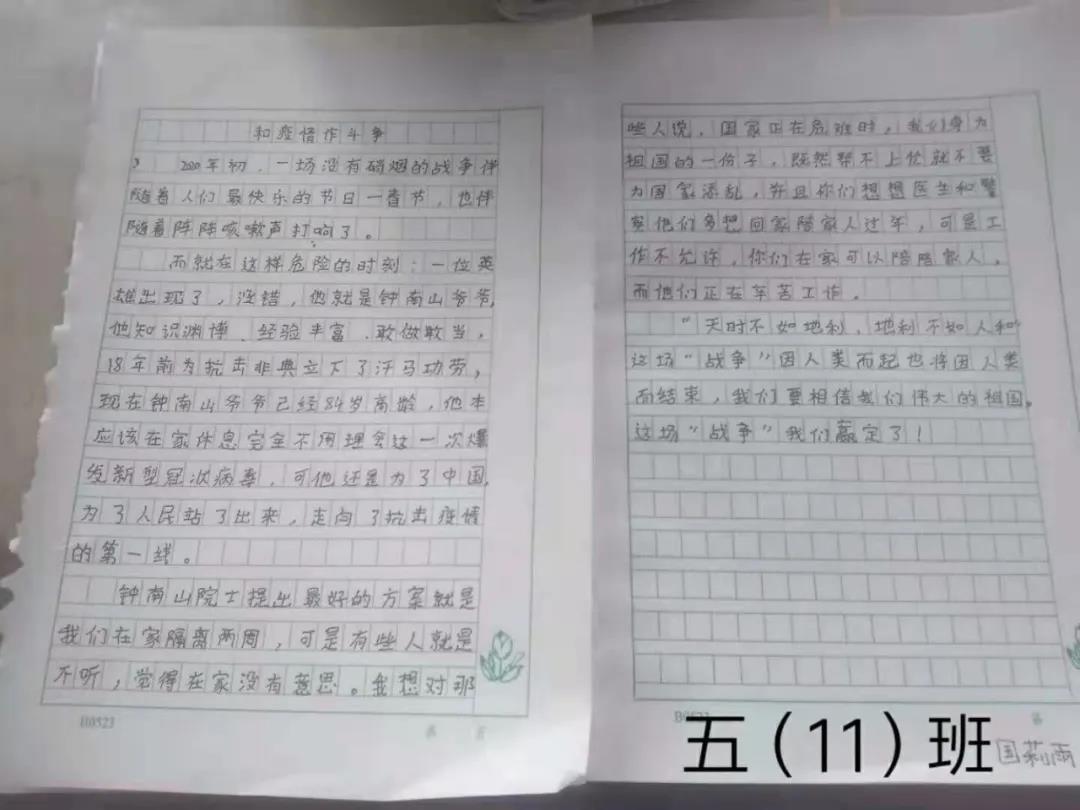 和疫情作斗争
2020年初，一场没有硝烟的战争伴
随着人们最快乐的节日一春节，也伴
随着阵阵咳嗽声打响了。
而就在这样危险的时刻：一位英
雄出现了，没错，他就是钟南山爷爷，
他知识渊博、经验丰富、敢做敢当，
18年前为抗击非典立下了汗马功劳，
现在钟南山爷爷已经84岁高龄，他本
应该在家休息完全不用理会这一次爆
发新型冠状病毒，可他还是为了中国，
为了人民站了出来，走向了抗击疫情
的第一线。
钟南山院士提出最好的方案就是
我们在家隔离两周，可是有些人就是
不听，觉得在家没有意思。我想对那
B0523
些人说，国家正在危难时，我们身为
祖国的一份子，既然帮不上忙就不要
为国家添乱，并且你们想想医生和警
察他们多想回家陪家人过年，可是工
作不允许，你们在家可以陪陪家人，
而他们正在辛苦工作。
"天时不如地利，地利不如人和"
这场"战争"因人类而起也将因人类
而结束，我们要相信我们伟大的祖国。
这场"战争"我们赢定了！
五（11）班
国莉雨